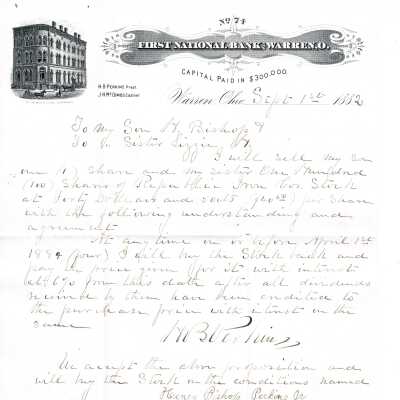 No. 74
FIRST NATIONAL BANK OF WARREN, O.
CAPITAL PAID IN $300,000
H B PERKINS Prest.
J H McCOMBS Cashier
Warren Ohio Sept 1st 1882
To my Son H Bishop P
To Sister Lizzie
I will sell my son
one (1) share and my sister One Hundred
(100) shares of Iron Stock
at Forty Dollars and per share
with the following understanding and
agreement
At any time on or before April 1st
1884 (four) I will buy the Stock back and
pay the price given for it with interest
at 6% from this date after all dividends
received by them have been credited to
the purchase price with interest on the
same
H B Perkins
We accept the above proposition and
will buy the Stock on the conditions named
Henry Bishop Perkins Jr